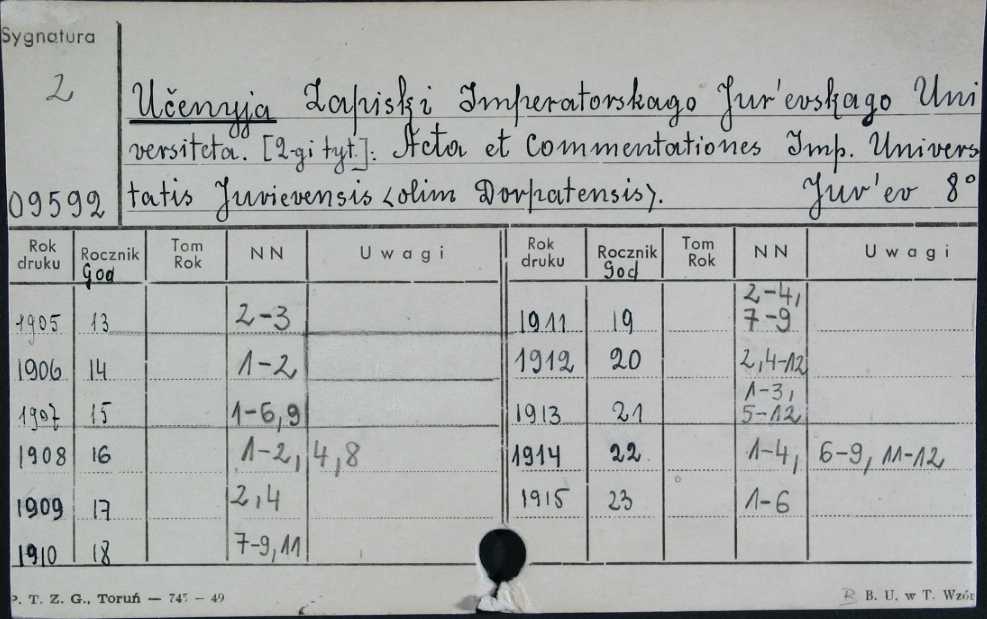 Sygnatura
2
Učenyja Zapiski Imperatorskago Jur'evskago Uni
versiteta. [2-gi tyt.]: Acta et Commentationes Imp. Univers
09592 tatis Jurievensis <olim Dorpatensis>. Jur'ev 8°
Rok druku Rocznik God Tom Rok NN Uwagi Rok druku Rocznik God Tom Rok NN Uwagi
1905 13 2-3 1911 19 2-4, 7-9
1906 14 1-2 1912 20 2,4-12
1907 15 1-6,9 1913 21 1-3, 5-12
1908 16 1-2, 4,8 1914 22 1-4, 6-9, 11-12
1909 17 2,4 1915 23 1-6
1910 18 7-9,11
P. T. Z. G., Toruń — 745 — 49 B. U. w T. Wzór